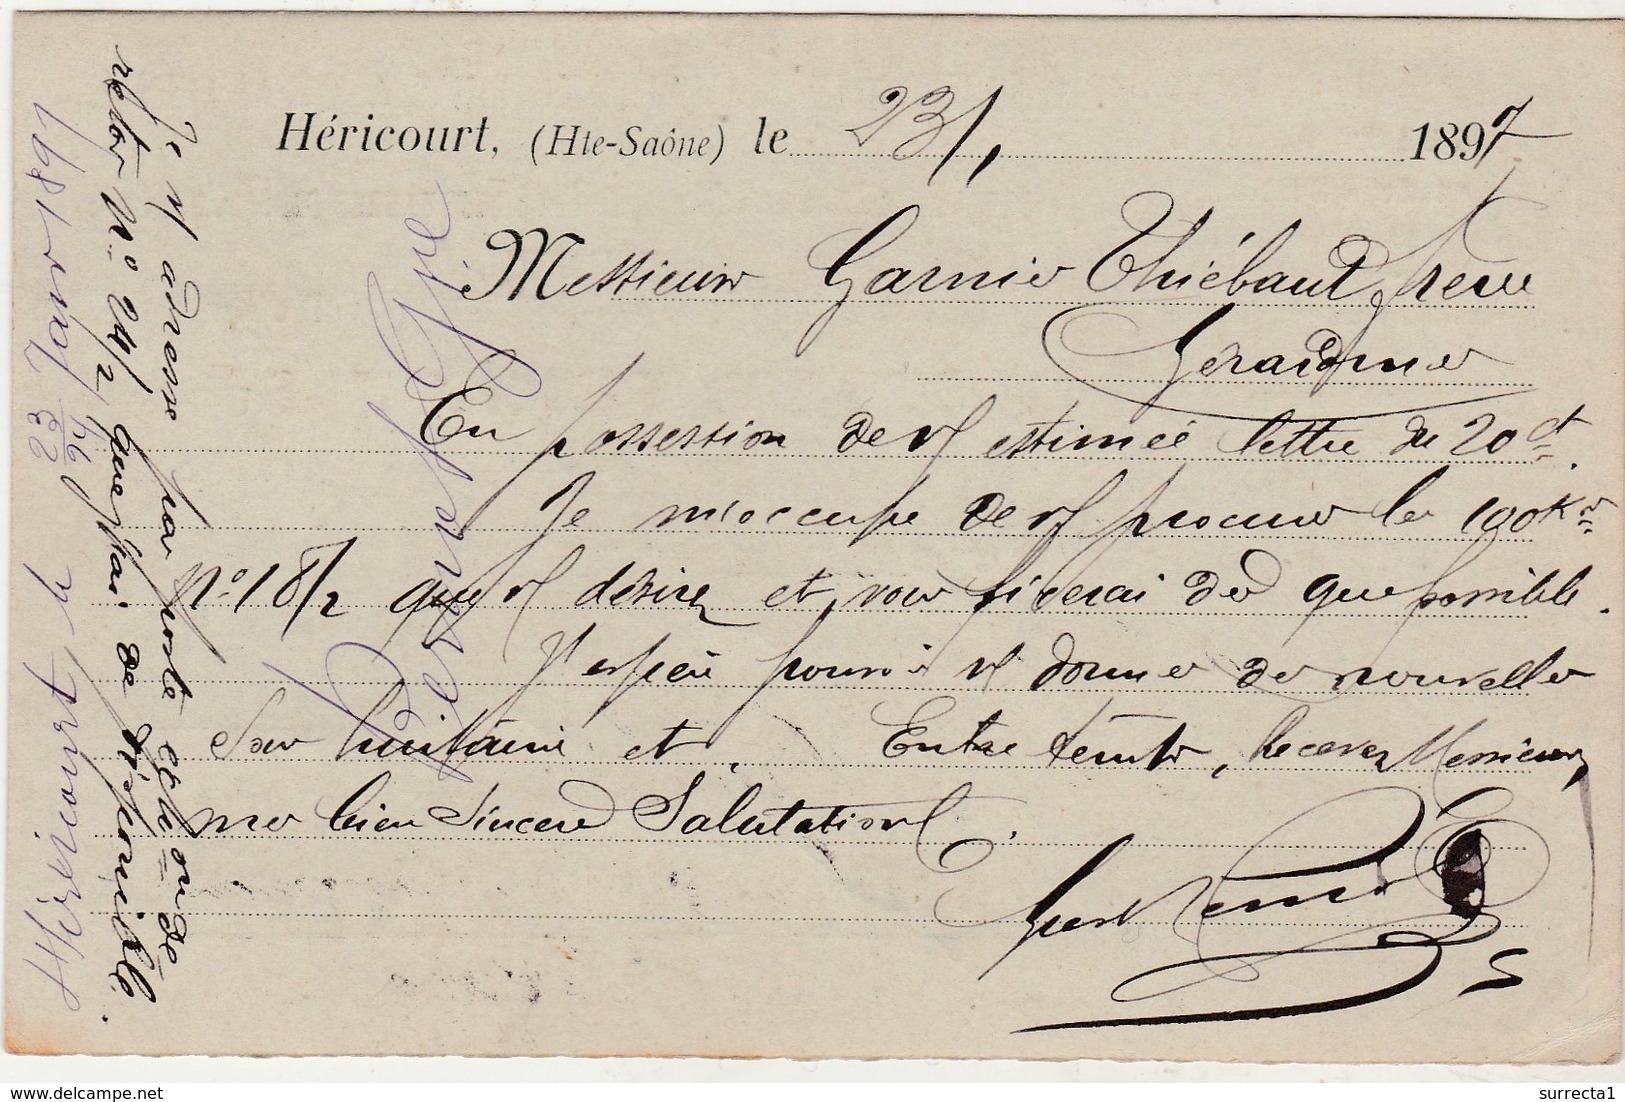 Héricourt, (Hte-Saône) le 23/1 1897
Messieurs Garnier Thiébaut frères
Gérardmer
En possession de vs estimée lettre du 20 ct.
Je m'occupe de vs procurer les 100 Ks
No. 18/2 que vs désirez et vous fixerai dès que possible.
J'espère pouvoir vs donner de nouvelles
sous huitaine et. Entre temps, Recevez Messieurs,
mes bien sincères Salutations.
Je vs adresse par poste éch. on de
No. 24/2 que j'ai de disponible.
Héricourt le 23 Janv 1897